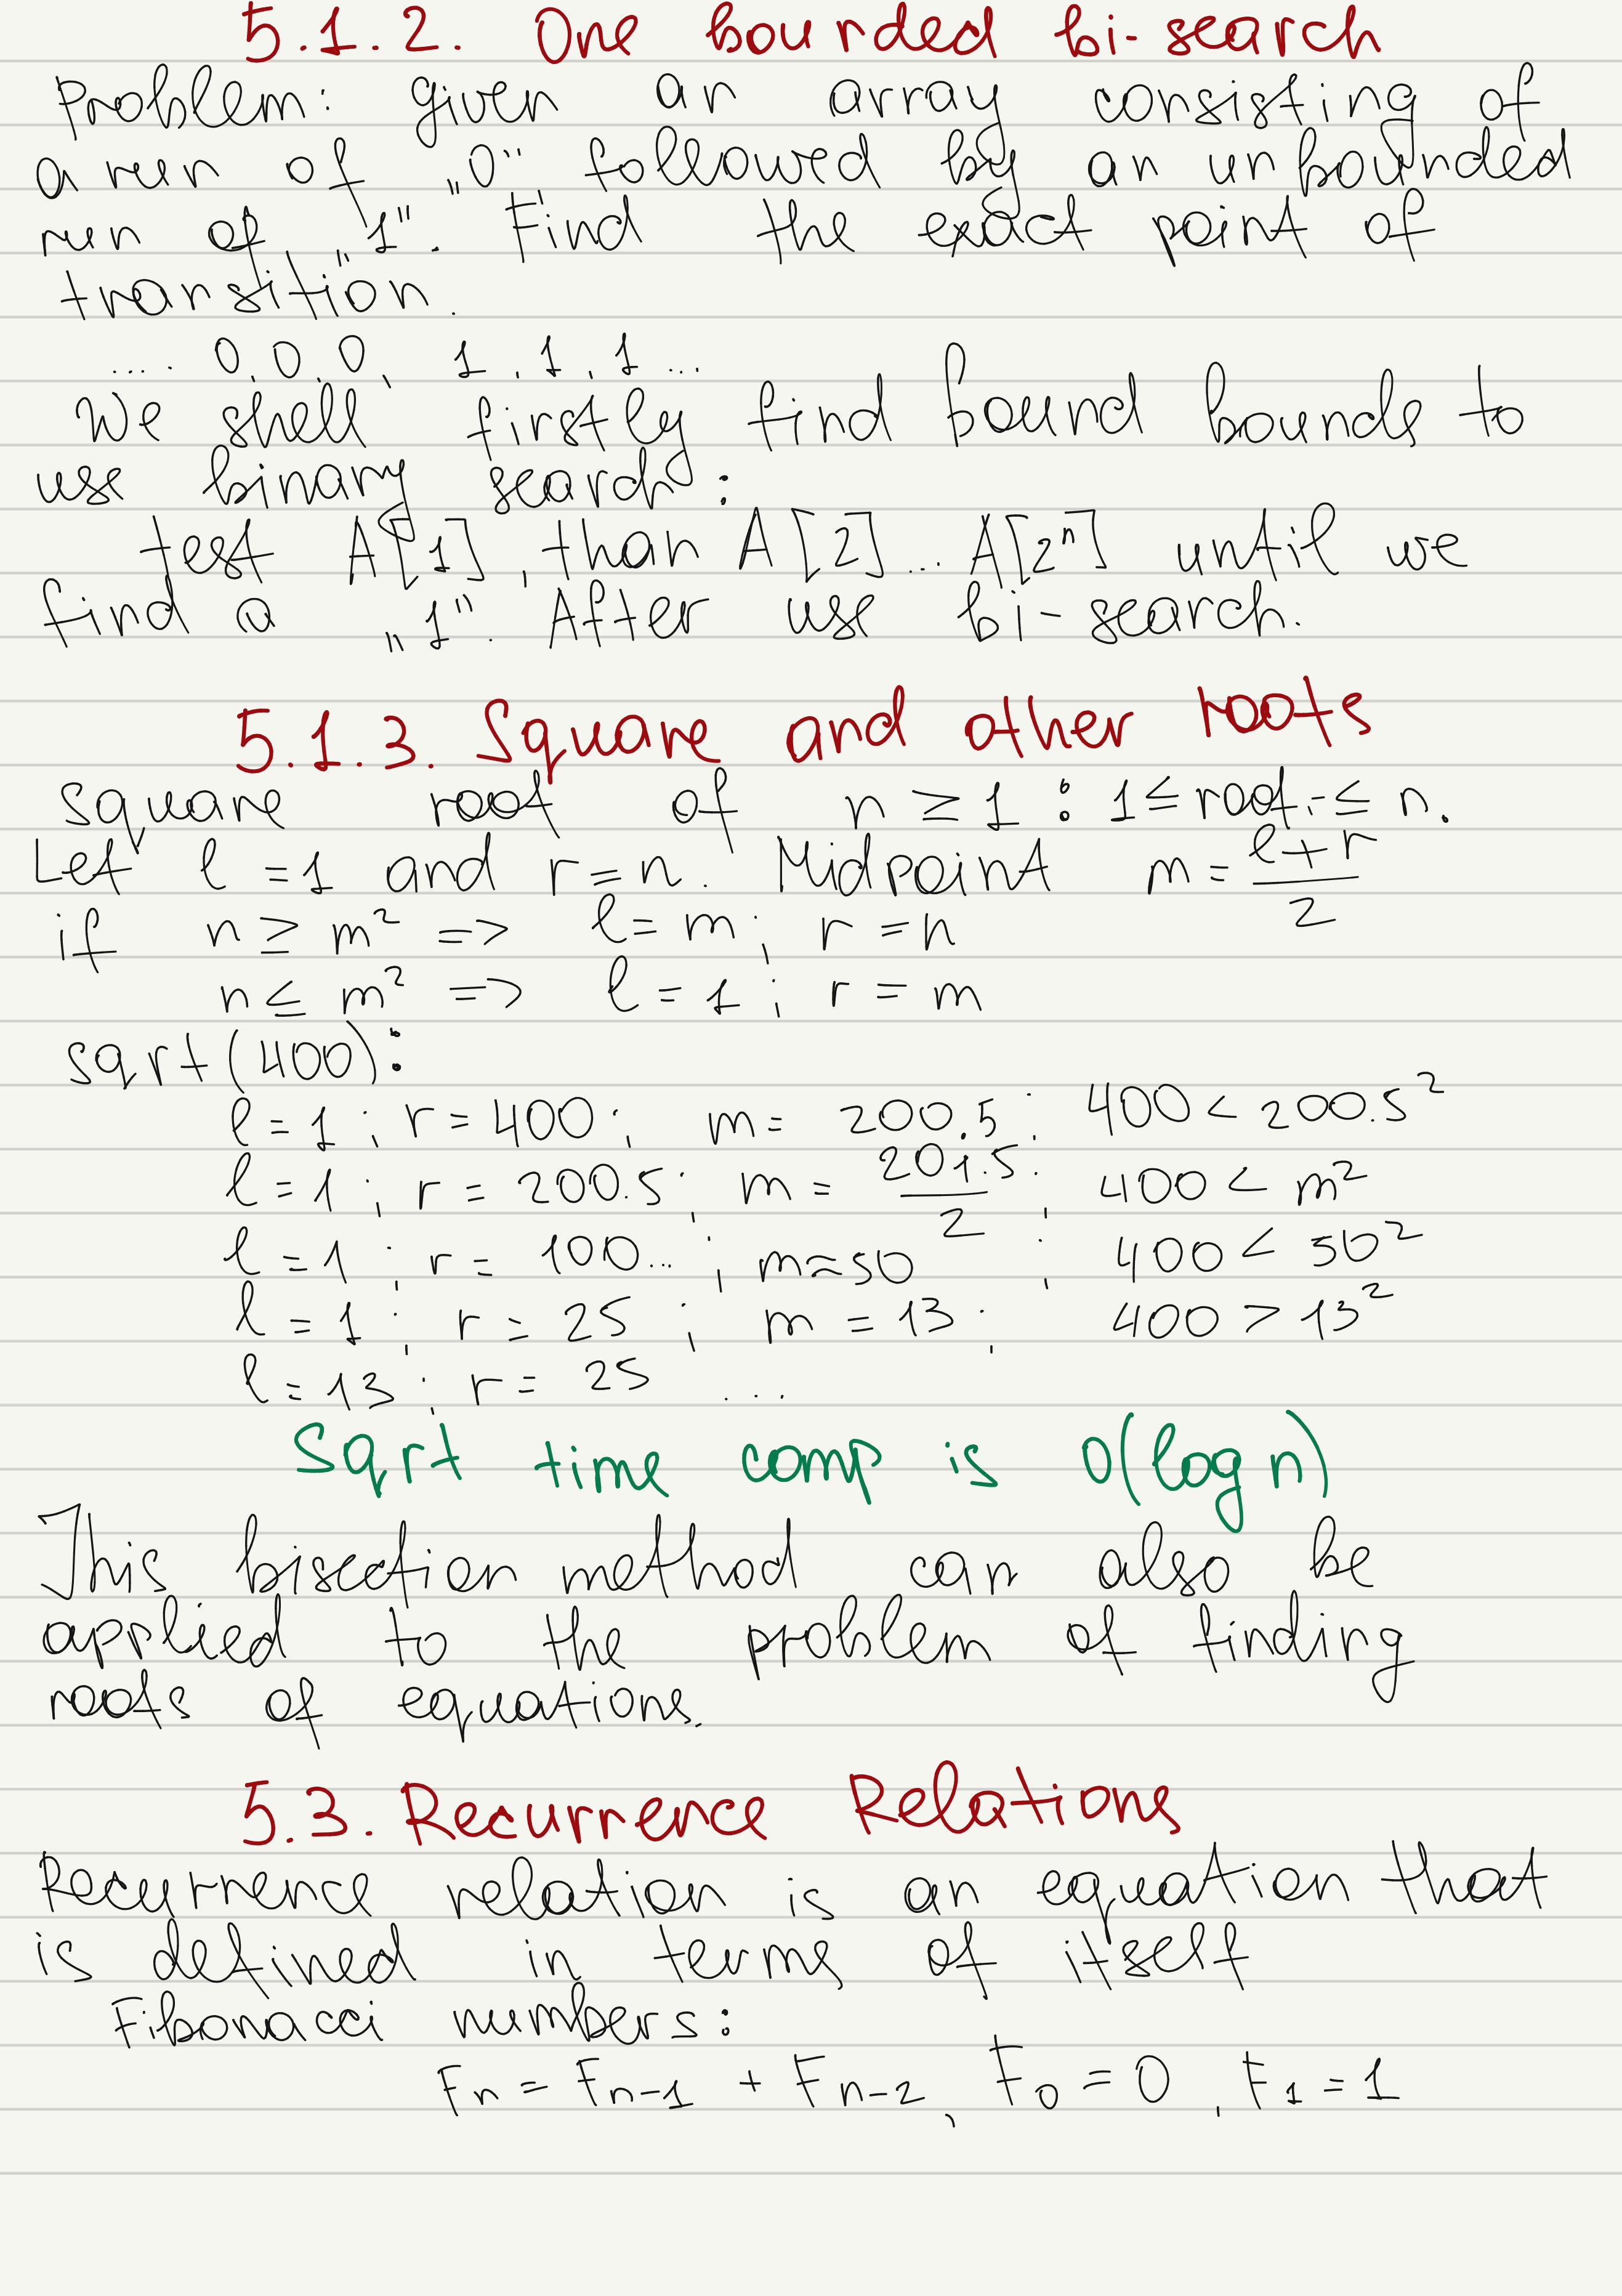 5.1.2. One bounded bi-search
Problem: given an array consisting of
a run of „0" followed by an unbounded
run of „1". Find the exact point of
transition.
.... 0, 0, 0, 1, 1, 1...
We shell firstly find bound bounds to
use binary search:
test A[1], than A[2]... A[2ⁿ] until we
find a „1". After use bi-search.
5.1.3. Square and other roots
square root of n ≥ 1 : 1 ≤ root ≤ n.
Let l = 1 and r = n. Midpoint m = (l + r)/2
if n ≥ m² => l = m; r = n
n ≤ m² => l = 1; r = m
sqrt(400):
l = 1; r = 400; m = 200.5; 400 < 200.5²
l = 1; r = 200.5; m = 201.5/2; 400 < m²
l = 1; r = 100...; m ≈ 50; 400 < 50²
l = 1; r = 25; m = 13; 400 > 13²
l = 13; r = 25 ...
Sqrt time comp is O(log n)
This bisection method can also be
applied to the problem of finding
roots of equations.
5.3. Recurrence Relations
Recurrence relation is an equation that
is defined in terms of itself
Fibonacci numbers:
Fₙ = Fₙ₋₁ + Fₙ₋₂, F₀ = 0, F₁ = 1